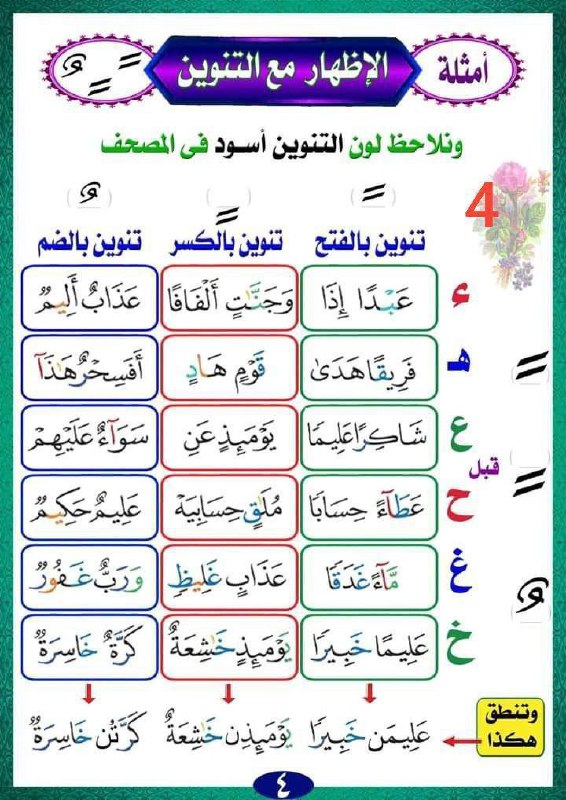 أمثلة الإظهار مع التنوين
ونلاحظ لون التنوين أسود فى المصحف
4
تنوين بالفتح تنوين بالكسر تنوين بالضم
ء عَبْدًا إِذَا وَجَنَّٰتٍ أَلْفَافًا عَذَابٌ أَلِيمٌ
هـ فَرِيقًا هَدَىٰ قَوْمٍ هَادٍ أَفَسِحْرٌ هَٰذَآ
ع شَاكِرًا عَلِيمًا يَوْمَئِذٍ عَنِ سَوَآءٌ عَلَيْهِمْ
قبل
ح عَطَآءً حِسَابًا مُلَٰقٍ حِسَابِيَهْ عَلِيمٌ حَكِيمٌ
غ مَّآءً غَدَقًا عَذَابٍ غَلِيظٍ وَرَبٌّ غَفُورٌ
خ عَلِيمًا خَبِيرًا يَوْمَئِذٍ خَٰشِعَةٌ كَرَّةٌ خَاسِرَةٌ
وتنطق هكذا عَلِيمَن خَبِيرًا يَوْمَئِذِن خَٰشِعَةٌ كَرَّتُن خَاسِرَةٌ
٤